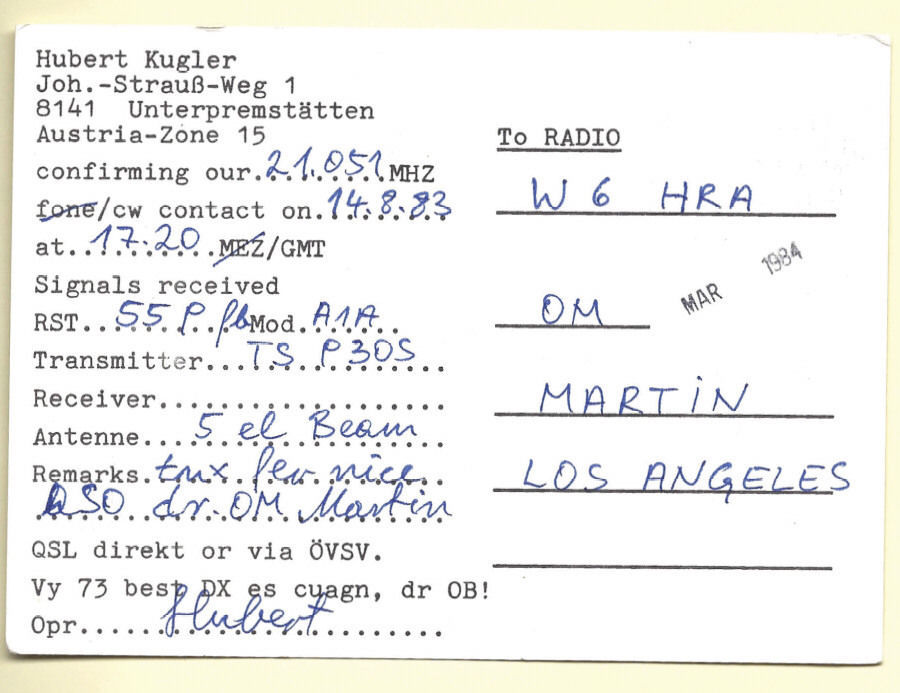 Hubert Kugler
Joh.-Strauß-Weg 1
8141 Unterpremstätten
Austria-Zone 15
confirming our.21.051.MHZ
fone/cw contact on.14.8.83
at..17.20...MEZ/GMT
Signals received
RST..55 9 fb Mod.A1A..
Transmitter...TS 930S...
Receiver....................
Antenne....5 el Beam..
Remarks.tnx fer nice
QSO dr. OM Martin
QSL direkt or via ÖVSV.
Vy 73 best DX es cuagn, dr OB!
Opr......Hubert..........
To RADIO
W 6 HRA
OM
MAR 1984
MARTiN
LOS ANGELES